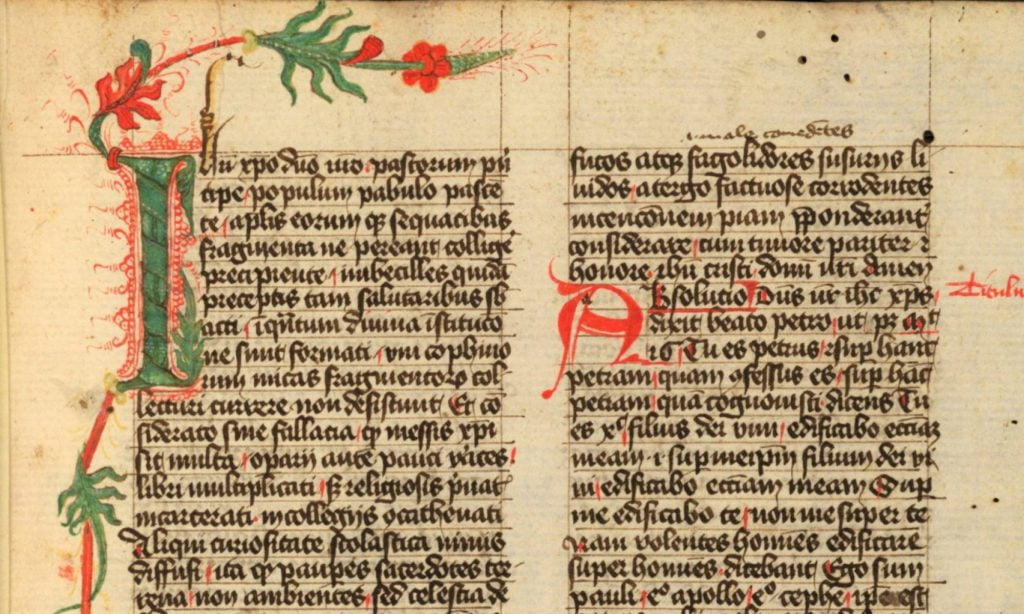 Ihu xpo duo nro pastorum prī
cipe populum pabulo pasce
te aplis eorum qꝫ sequacibus
fragmenta ne pereant collige
precipiente imbecilles quidā
preceptis tam salutaribus sb
acti iquntum diuina īstitucō
ne sunt formati viii cophino
rum micas fragmentorꝫ col
lecturi currere non desistunt Et cō
siderato sine fallacia qꝫ messis xpi
sit multa operarij autē pauci vīces
libri multiplicati Sꝫ religiosis priuat
incarcerati in collegijs ꝯcathenati
Aliqui curiositate scolastica nimis
diffusi ita qꝫ paupes sacerdotes ter
rena non ambientes sed celestia de
male comedētes
fucos atqꝫ fagolidores susurris li
uidos atergo fructuose corrodentes
intencōnem piam ꝓponderant
considerare cum timore pariter ⁊
honore ihu cristi domī nri amen
Absolucio Dūs nr ihc xps
dixit beato petro ut pꝫ mt
16 Tu es petrus ⁊ sup hanc
petram quam ꝯfessus es sup hāc
petram quā cognouisti dicens Tu
es xᵒ filius dei viui edificabo ecciaꝫ
meam .i. sup meipm filium dei vi
ui edificabo ecciam meam Sup
me edificabo te non me super te
Nam volentes homīes edificare
super homīes dicebant Ego sum
pauli eᵒ apollo eᵒ cephe ipe est
Titulu